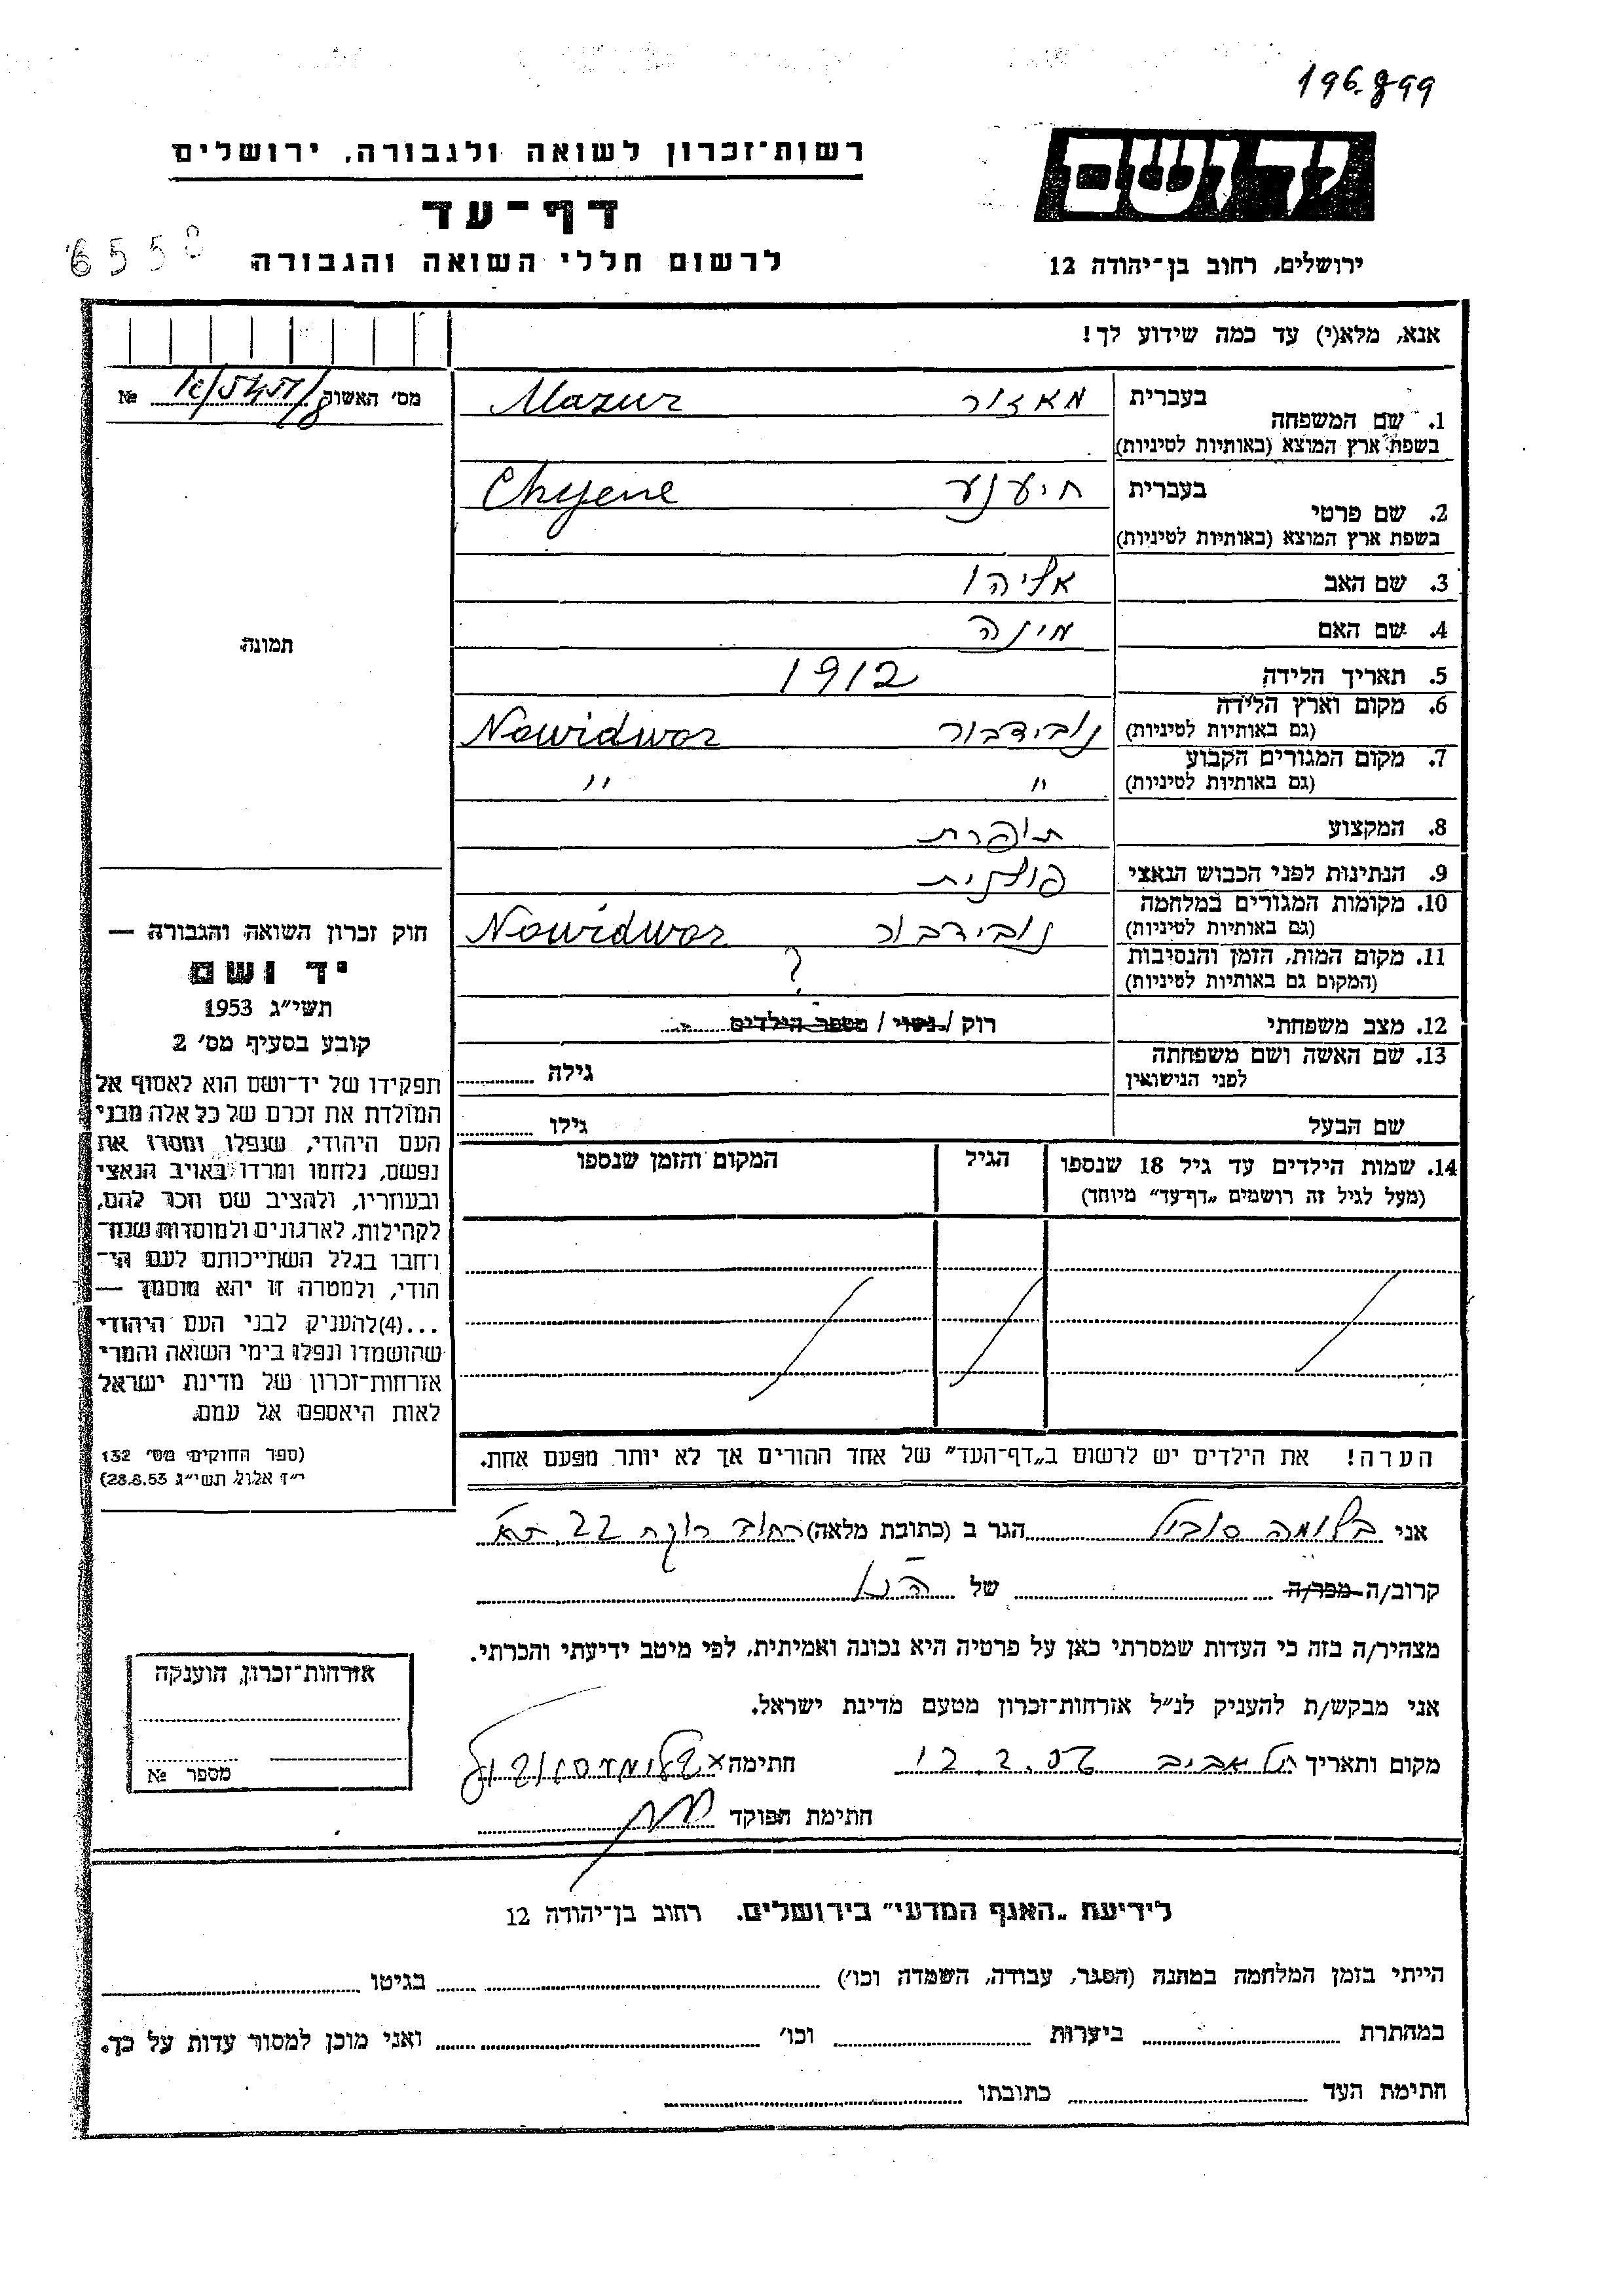 196.899
רשות־זכרון לשואה ולגבורה, ירושלים
יד ושם
דף־עד
6558
לרשום חללי השואה והגבורה
ירושלים, רחוב בן־יהודה 12
אנא, מלא(י) עד כמה שידוע לך!
מס׳ האשוה №
1. שם המשפחה
בעברית מאזור Mazur
בשפת ארץ המוצא (באותיות לטיניות)
2. שם פרטי
בעברית חיענע Chyene
בשפת ארץ המוצא (באותיות לטיניות)
3. שם האב אליהו
4. שם האם מינה
תמונה
5. תאריך הלידה 1912
6. מקום וארץ הלידה נובידבור Nowidwor
(גם באותיות לטיניות)
7. מקום המגורים הקבוע " "
(גם באותיות לטיניות)
8. המקצוע תופרת
9. הנתינות לפני הכבוש הנאצי פולנית
10. מקומות המגורים במלחמה נובידבור Nowidwor
(גם באותיות לטיניות)
11. מקום המות, הזמן והנסיבות ?
(המקום גם באותיות לטיניות)
12. מצב משפחתי רוק / נשוי / מספר הילדים
13. שם האשה ושם משפחתה גילה
לפני הנישואין
שם הבעל גילו
14. שמות הילדים עד גיל 18 שנספו הגיל המקום והזמן שנספו
(מעל לגיל זה רושמים „דף־עד״ מיוחד)
חוק זכרון השואה והגבורה —
יד ושם
תשי״ג 1953
קובע בסעיף מס׳ 2
תפקידו של יד־ושם הוא לאסוף אל
המולדת את זכרם של כל אלה מבני
העם היהודי, שנפלו ומסרו את
נפשם, נלחמו ומרדו באויב הנאצי
ובעוזריו, ולהציב שם וזכר להם,
לקהילות, לארגונים ולמוסדות שנח־
רחבו בגלל השתייכותם לעם הי־
הודי, ולמטרה זו יהא מוסמך —
...(4)להעניק לבני העם היהודי
שהושמדו ונפלו בימי השואה והמרי
אזרחות־זכרון של מדינת ישראל
לאות היאספם אל עמם.
(ספר החוקים מס׳ 132
י״ז אלול תשי״ג 28.8.53)
הערה! את הילדים יש לרשום ב„דף־העד״ של אחד ההורים אך לא יותר מפעם אחת.
אני בלומה סוביל הגר ב (כתובת מלאה) רחוב 22 תא
קרוב/ה מכר/ה של הנ״ל
מצהיר/ה בזה כי העדות שמסרתי כאן על פרטיה היא נכונה ואמיתית, לפי מיטב ידיעתי והכרתי.
אני מבקש/ת להעניק לנ״ל אזרחות־זכרון מטעם מדינת ישראל.
מקום ותאריך תל אביב 12.2.56 חתימה
חתימת הפוקד
אזרחות־זכרון, הוענקה
מספר №
לידיעת „האגף המדעי״ בירושלים. רחוב בן־יהודה 12
הייתי בזמן המלחמה במחנה (הסגר, עבודה, השמדה וכו׳) בגיטו
במחתרת ביערות וכו׳ ואני מוכן למסור עדות על כך.
חתימת העד כתובתו